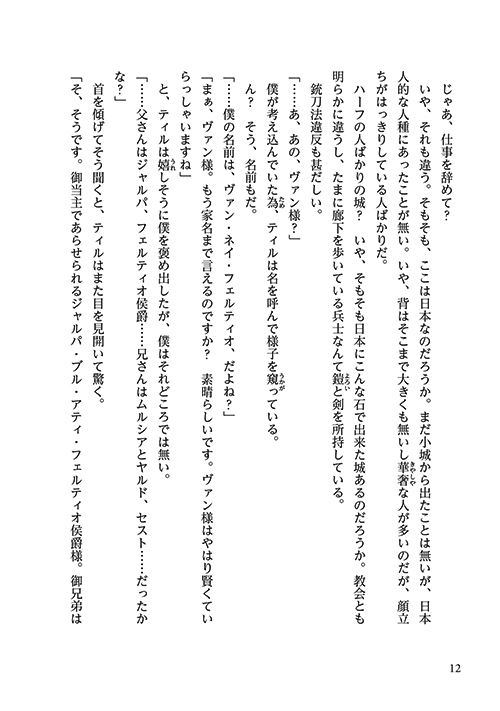 じゃあ、仕事を辞めて？
いや、それも違う。そもそも、ここは日本なのだろうか。まだ小城から出たことは無いが、日本
人的な人種にあったことが無い。いや、背はそこまで大きくも無いし華奢な人が多いのだが、顔立
ちがはっきりしている人ばかりだ。
ハーフの人ばかりの城？　いや、そもそも日本にこんな石で出来た城あるのだろうか。教会とも
明らかに違うし、たまに廊下を歩いている兵士なんて鎧と剣を所持している。
銃刀法違反も甚だしい。
「……あ、あの、ヴァン様？」
僕が考え込んでいた為、ティルは名を呼んで様子を窺っている。
ん？　そう、名前もだ。
「……僕の名前は、ヴァン・ネイ・フェルティオ、だよね？」
「まぁ、ヴァン様。もう家名まで言えるのですか？　素晴らしいです。ヴァン様はやはり賢くてい
らっしゃいますね」
と、ティルは嬉しそうに僕を褒め出したが、僕はそれどころでは無い。
「……父さんはジャルパ、フェルティオ侯爵……兄さんはムルシアとヤルド、セスト……だったか
な？」
首を傾げてそう聞くと、ティルはまた目を見開いて驚く。
「そ、そうです。御当主であらせられるジャルパ・ブル・アティ・フェルティオ侯爵様。御兄弟は
12